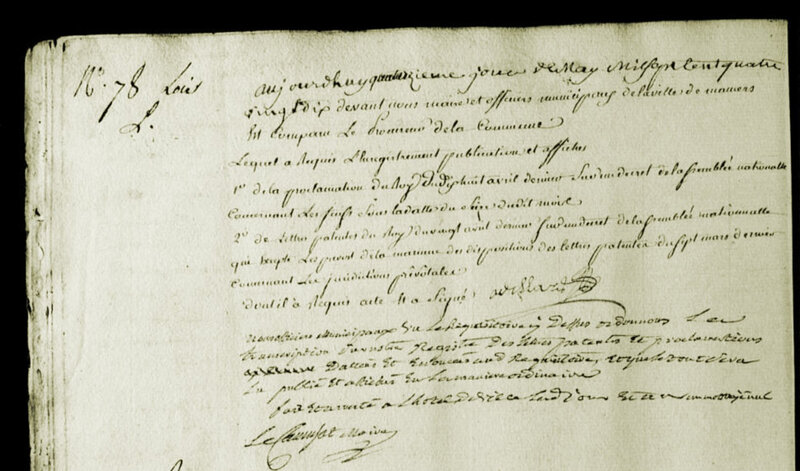 N°. 78 Lois
L.
aujourdhuy quatorzieme jour de May Mil sept Cent quatre
vingt dix devant nous maire et officiers municipaux de la ville de mamers
Est comparu Le Procureur de la Commune
Lequel a Requis L'Enregistrement publication et affiches
1° de la proclamation du Roy du dixhuit avril dernier Sur un decret de la semblée nationalle
Concernant Les Juifs Sous la datte du Seize dudit mois
2° de Lettres patentes du Roy du vingt avril dernier Sur un decret de la semblée nationnalle
qui excepte Les prevots de la marinne des dispositions des lettres patentes du sept mars dernier
Concernant Les juridictions prévôtales
dont il a Requis acte Et a Signé
Nous officiers Municipaux Vu Le Requisitoire Cy Dessus ordonnons Le
transcription Sur notre Registre Des lettres patentes Et proclamations
Dattées Et Enoncées aud Requisitoire,
Lu publié Et afiché En La maniere ordinaire
fait Et arreté a L'hotel De Ville Led jour Et
Maire